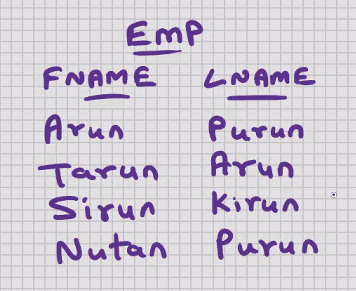 EmP
FNAME LNAME
Arun Purun
Tarun Arun
Sirun Kirun
Nutan Purun